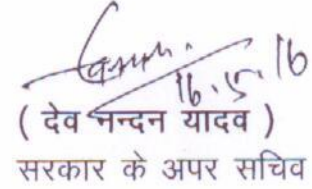 16.5.16
( देव नन्दन यादव )
सरकार के अपर सचिव